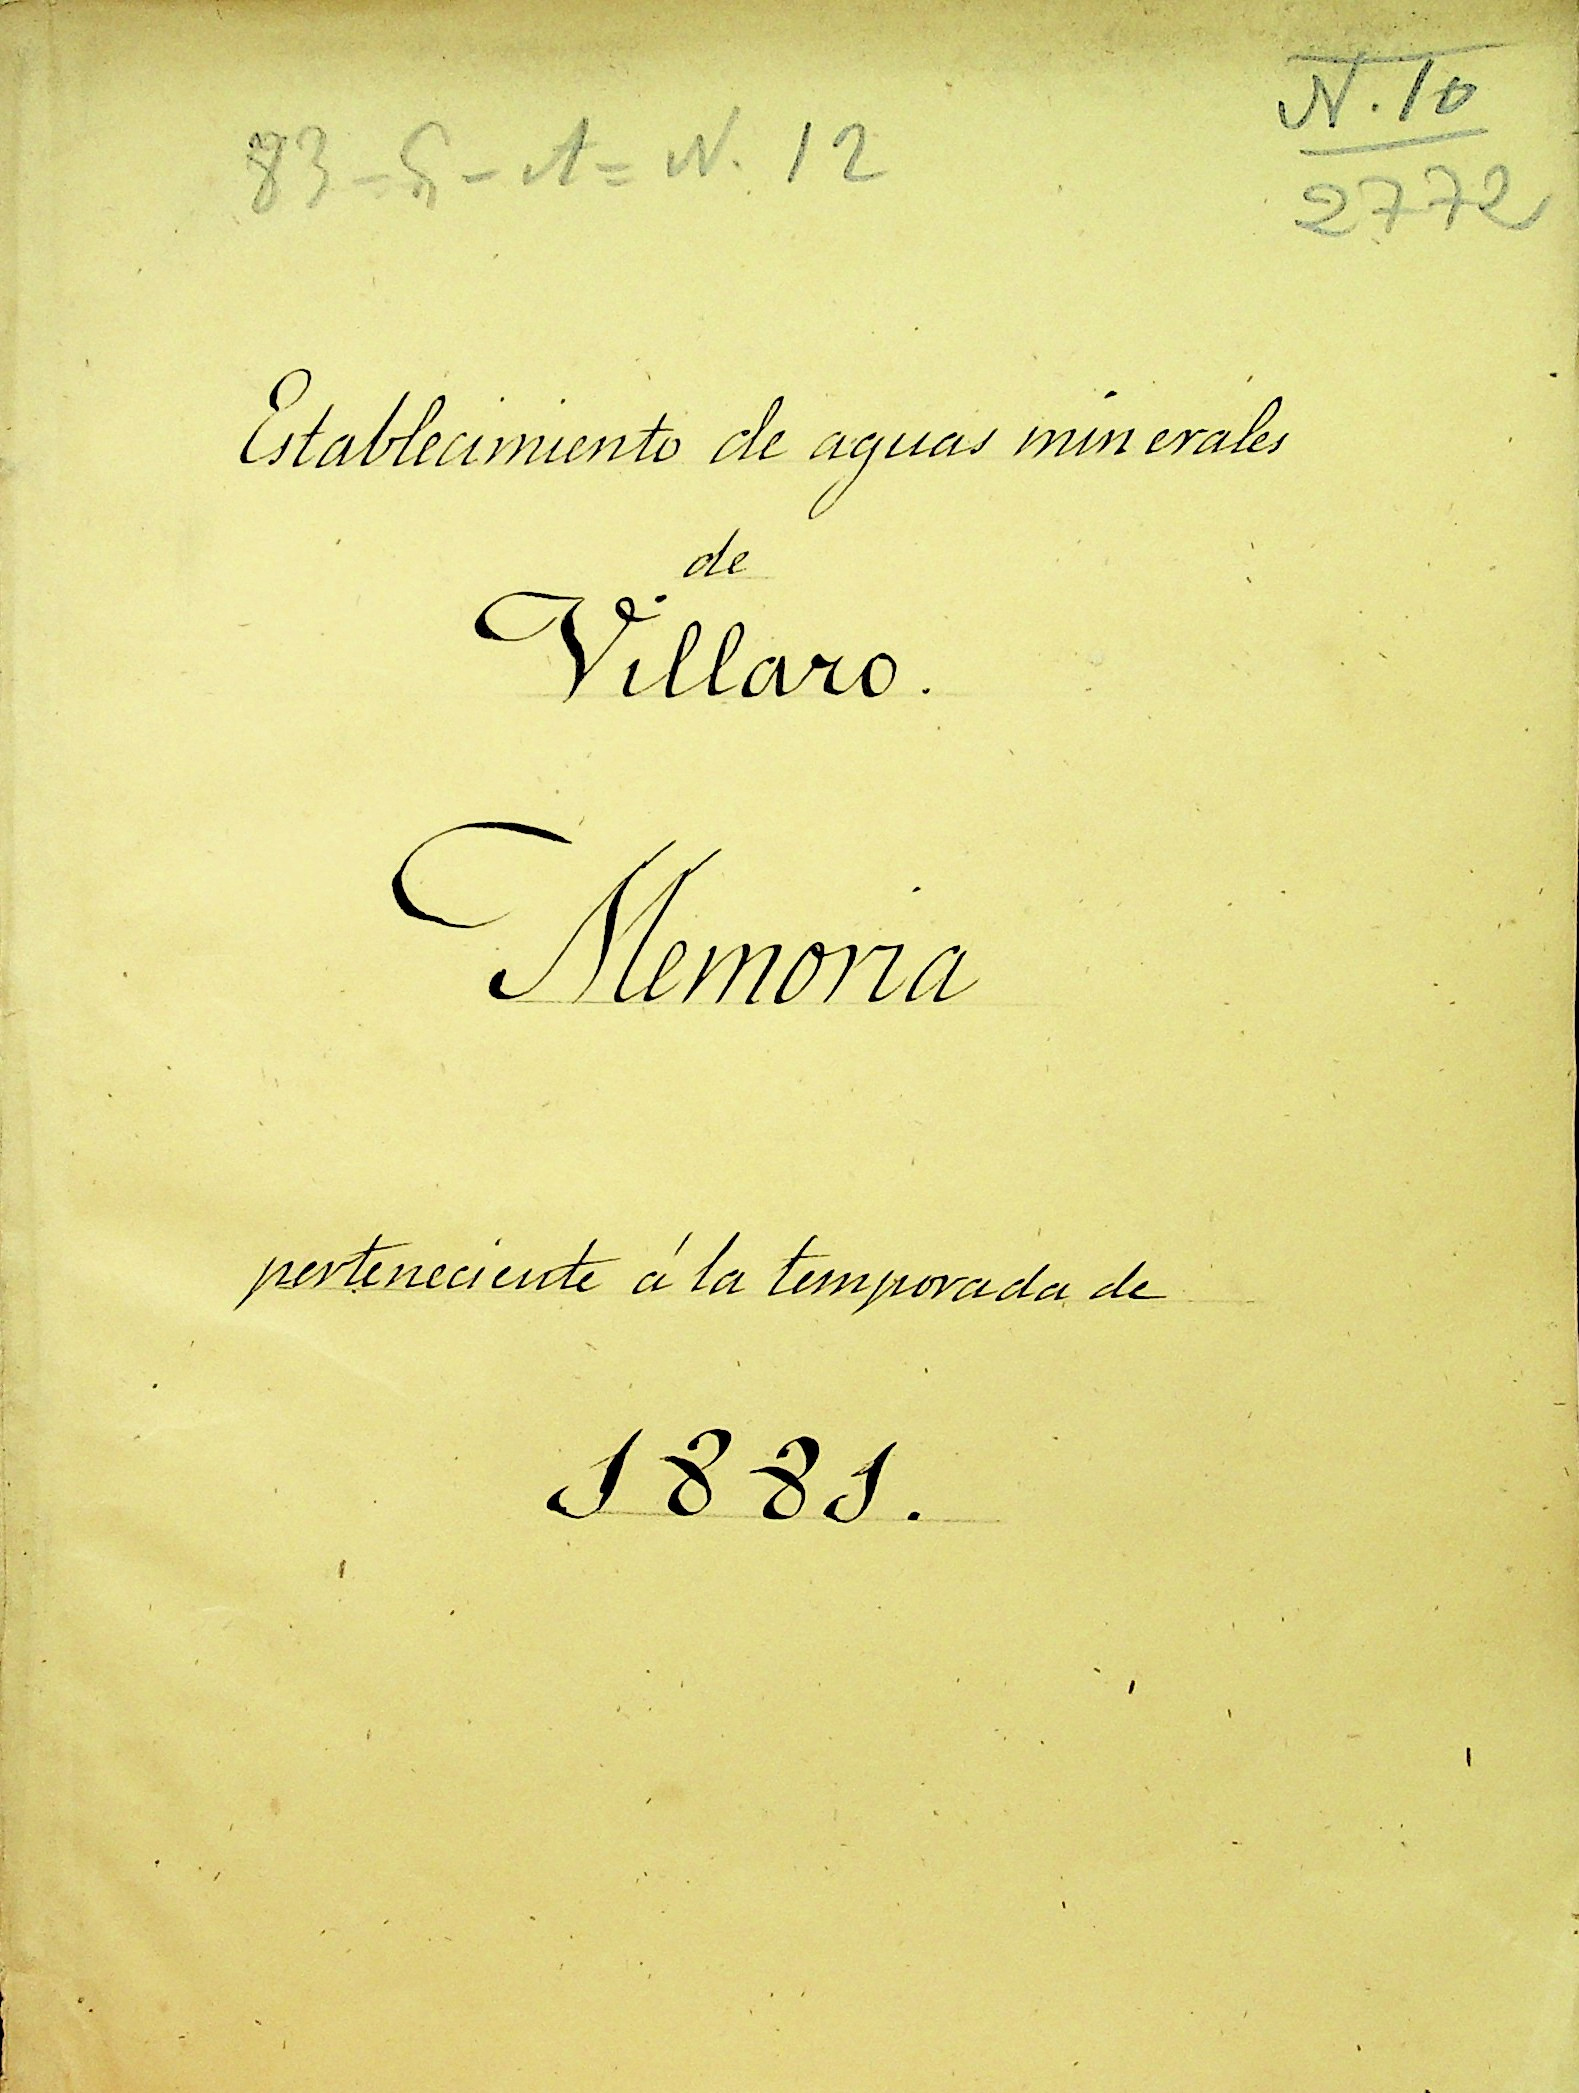 83 = S - A = N. 12
N. 10
2772
Establecimiento de aguas minerales
de
Villaro.
Memoria
perteneciente á la temporada de
1881.